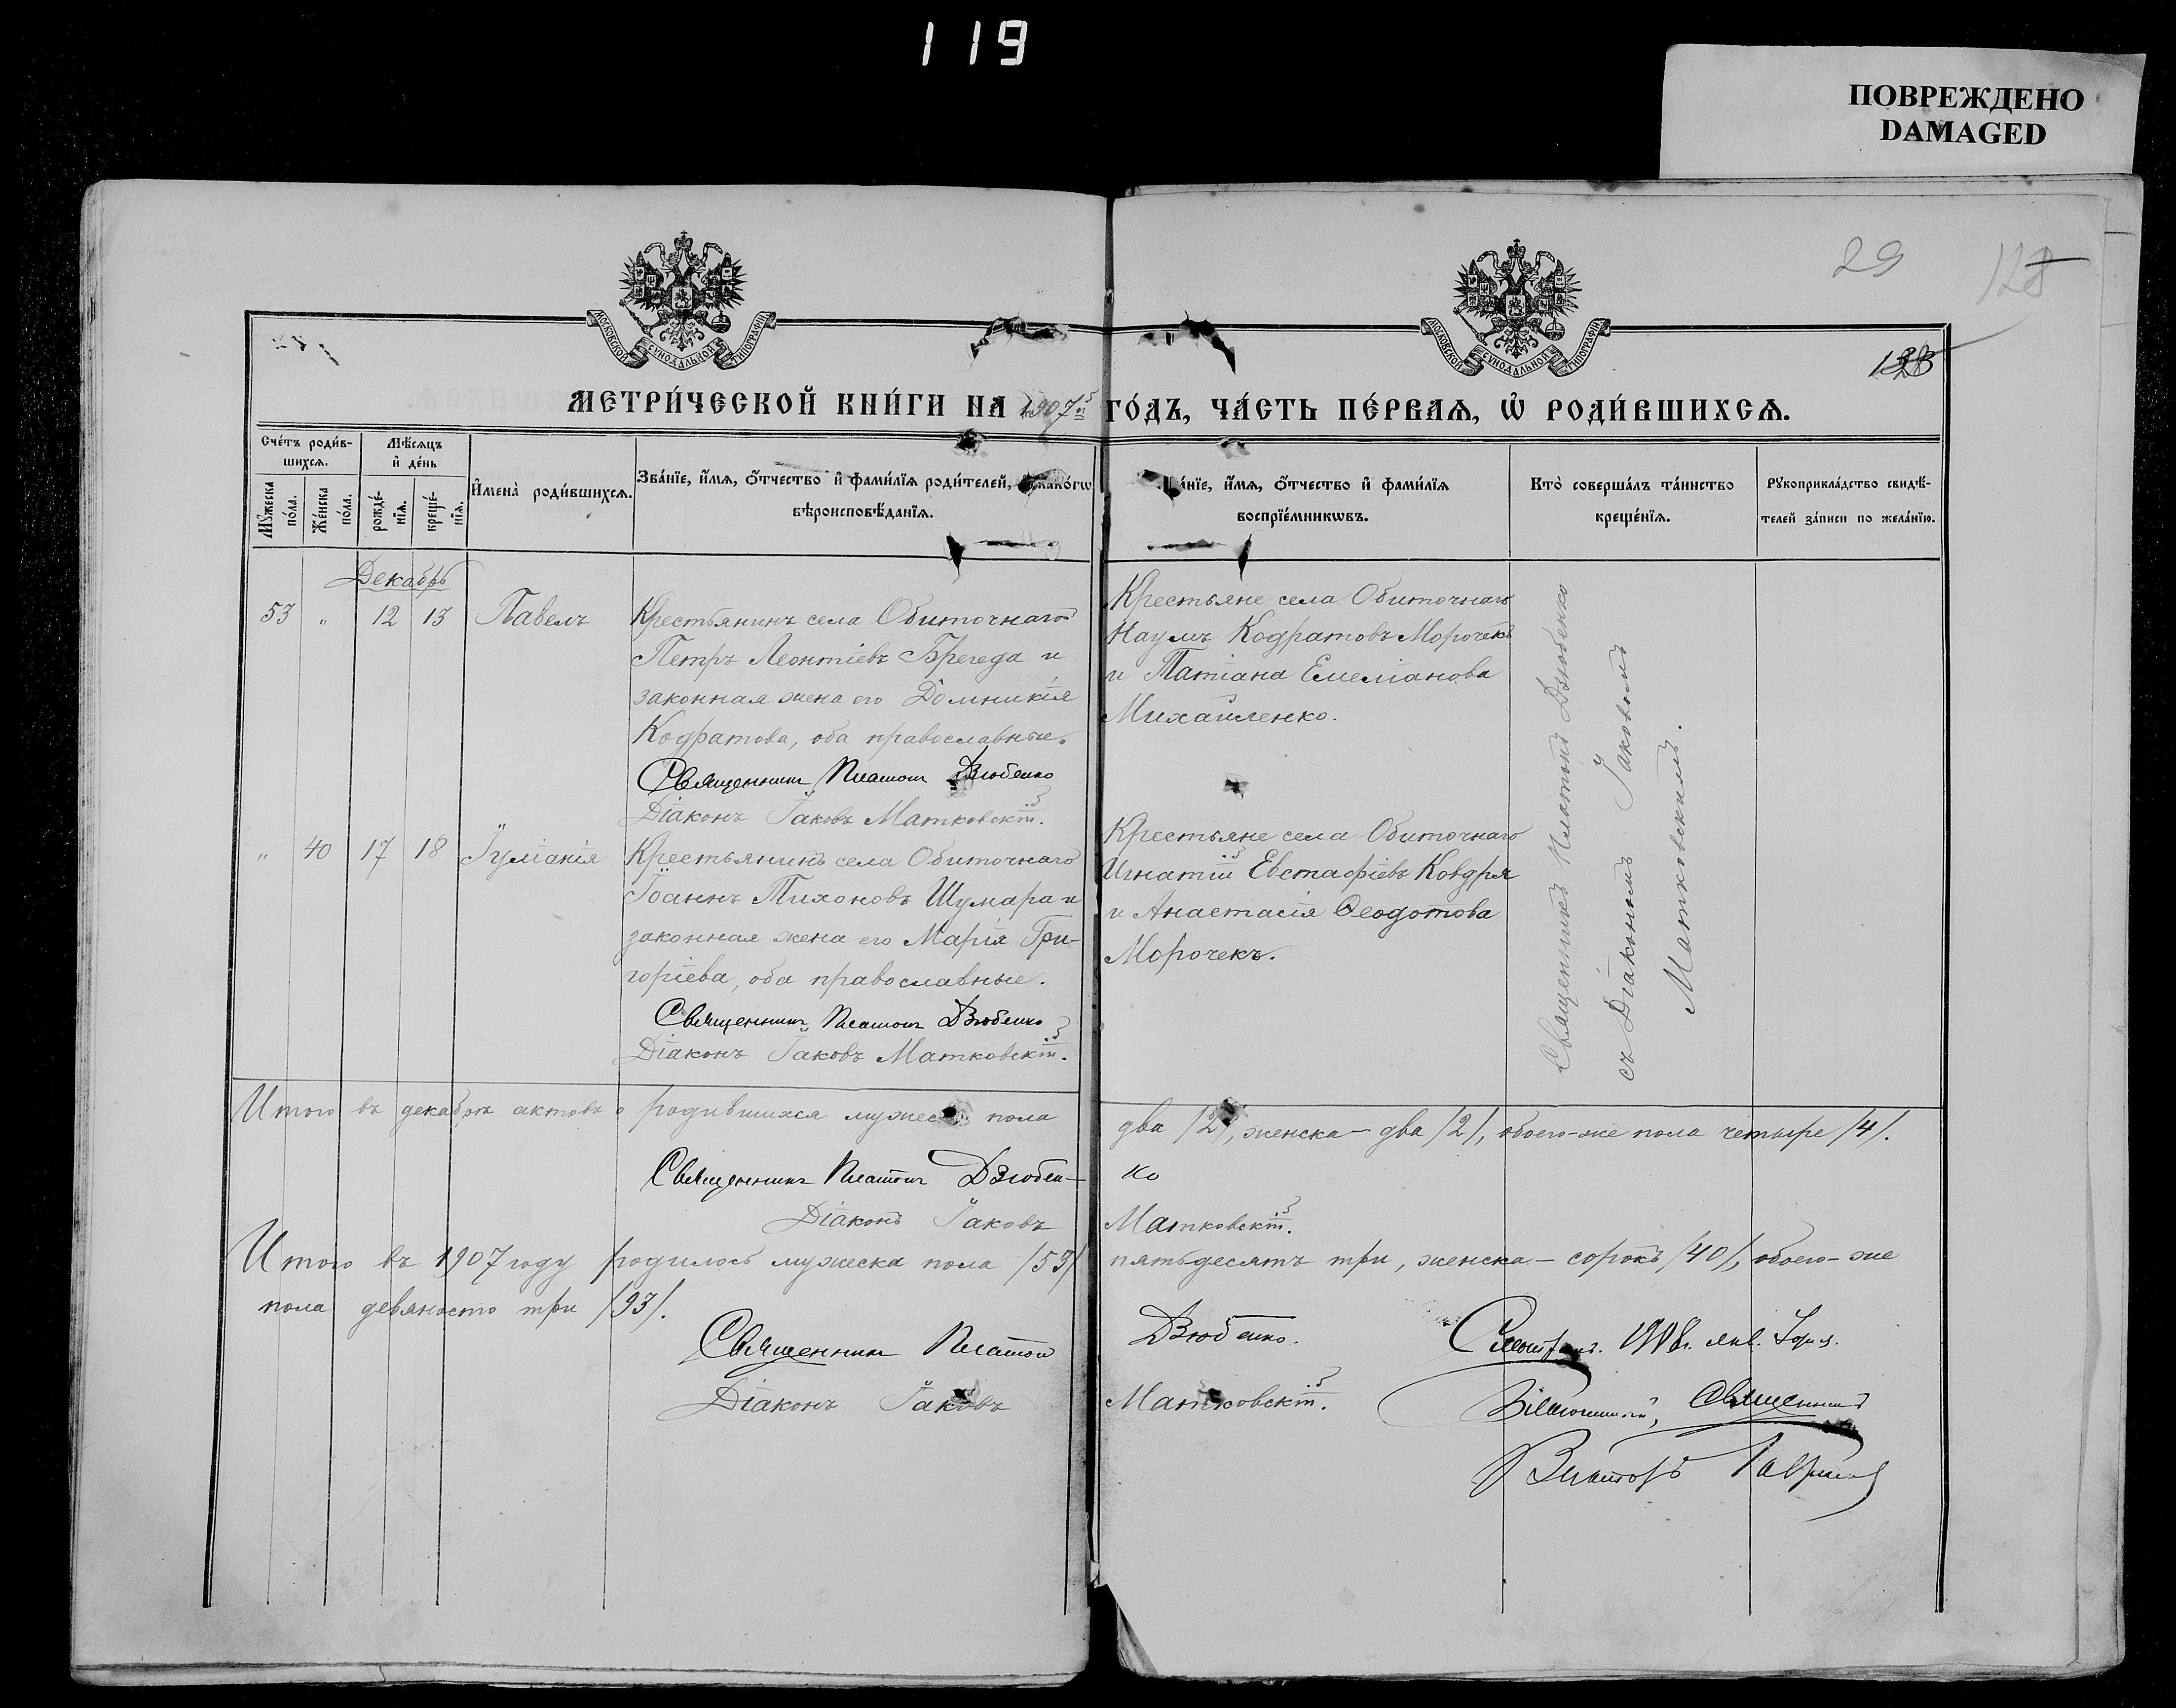 119
ПОВРЕЖДЕНО
DAMAGED
29
128
МОСКОВСКОЙ СУНОДАЛЬНОЙ ТИПОГРАФІИ
МОСКОВСКОЙ СУНОДАЛЬНОЙ ТИПОГРАФІИ
МЕТРИ́ЧЕСКОЙ КНИ́ГИ НА 1907й ГО́ДЪ, ЧА́СТЬ ПЕ́РВАѦ, Ѡ҆ РОДИ́ВШИХСѦ.
Сче́тъ роди́в-
шихсѧ.
Мꙋ́жеска по́ла.
Же́нска по́ла.
Мѣ́сѧцъ
и҆ де́нь
рожде́-
нїѧ.
креще́-
нїѧ.
И҆мена̀ роди́вшихсѧ.
Зва́нїе, и҆́мѧ, ѻ҆́тчество и҆ фами́лїѧ роди́телей,
вѣроисповѣ́данїѧ.
и҆́мѧ, ѻ҆́тчество и҆ фами́лїѧ
воспрїе́мникѡвъ.
Кто̀ соверша́лъ та́инство
креще́нїѧ.
Рꙋкоприкла́дство свидѣ́-
телей за́писи по жела́нїю.
Декабрь
53 " 12 13 Павелъ
Крестьянинъ села Обиточнаго
Петръ Леонтіевъ Брегеда и
законная жена его Домникія
Кодратова, оба православные.
Священникъ Платонъ Дзюбенко
Діаконъ Іаковъ Матковскій.
Крестьяне села Обиточнаго
Наумъ Кодратовъ Морочекъ
и Татіана Емеліанова
Михайленко.
Священникъ Платонъ Дзюбенко
съ Діакономъ Іаковомъ
Матковскимъ.
" 40 17 18 Іуліанія
Крестьянинъ села Обиточнаго
Іоаннъ Тихоновъ Шумара и
законная жена его Марія Гри-
горіева, оба православные.
Священникъ Платонъ Дзюбенко
Діаконъ Іаковъ Матковскій.
Крестьяне села Обиточнаго
Игнатій Евстафіевъ Ковдря
и Анастасія Ѳеодотова
Морочекъ.
Итого въ декабрѣ актовъ о родившихся мужеска пола два /2/, женска – два /2/, обоего-же пола четыре /4/.
Священникъ Платонъ Дзюбен-ко
Діаконъ Іаковъ Матковскій.
Итого въ 1907 году родилось мужеска пола /53/ пятьдесятъ три, женска – сорокъ /40/, обоего-же
пола девяносто три /93/.
Священникъ Платонъ Дзюбенко.
Діаконъ Іаковъ Матковскій.
1908г. янв.
Благочинный, Священникъ